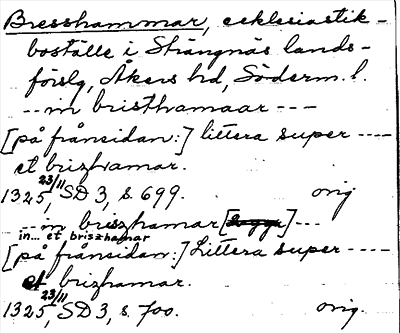 Bresshammar, ecklesiastik-
boställe i Strängnäs lands-
förslg, Åkers hd, Söderm. l.
-- in bristhvamaar ---
[på frånsidan:] littera super ----
et brizhvamar.
23/11
1325, SD 3, s. 699. orig
-- in briszhamar [] ---
in... et briszhamar
[på frånsidan:] Littera super ----
et brizhamar.
23/11
1325, SD 3, s. 700. orig.